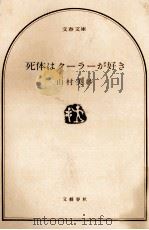 文春文庫
死体はクーラーが好き
山村美紗
文藝春秋